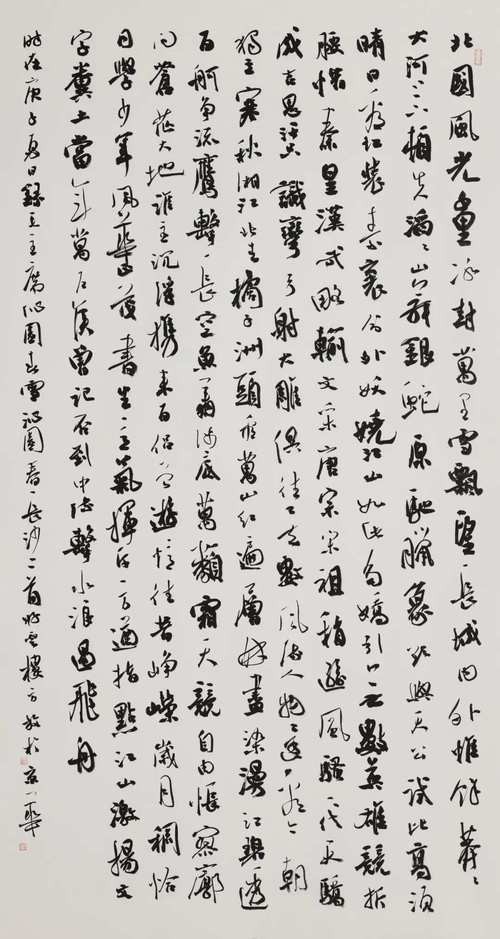 北國風光千里冰封萬里雪飄望長城内外惟餘莽莽
大河上下頓失滔滔山舞銀蛇原馳臘象欲與天公試比高須
晴日看紅裝素裹分外妖嬈江山如此多嬌引無數英雄競折
腰惜秦皇漢武略輸文采唐宗宋祖稍遜風騷一代天驕
成吉思汗只識彎弓射大雕俱往矣數風流人物還看今朝
獨立寒秋湘江北去橘子洲頭看萬山紅遍層林盡染漫江碧透
百舸爭流鷹擊長空魚翔淺底萬類霜天競自由悵寥廓
問蒼茫大地誰主沉浮攜來百侶曾遊憶往昔崢嶸歲月稠恰
同學少年風華正茂書生意氣揮斥方遒指點江山激揚文
字糞土當年萬戶侯曾記否到中流擊水浪遏飛舟
時在庚子夏日錄毛主席沁園春雪沁園春長沙二首雲樓方於京華